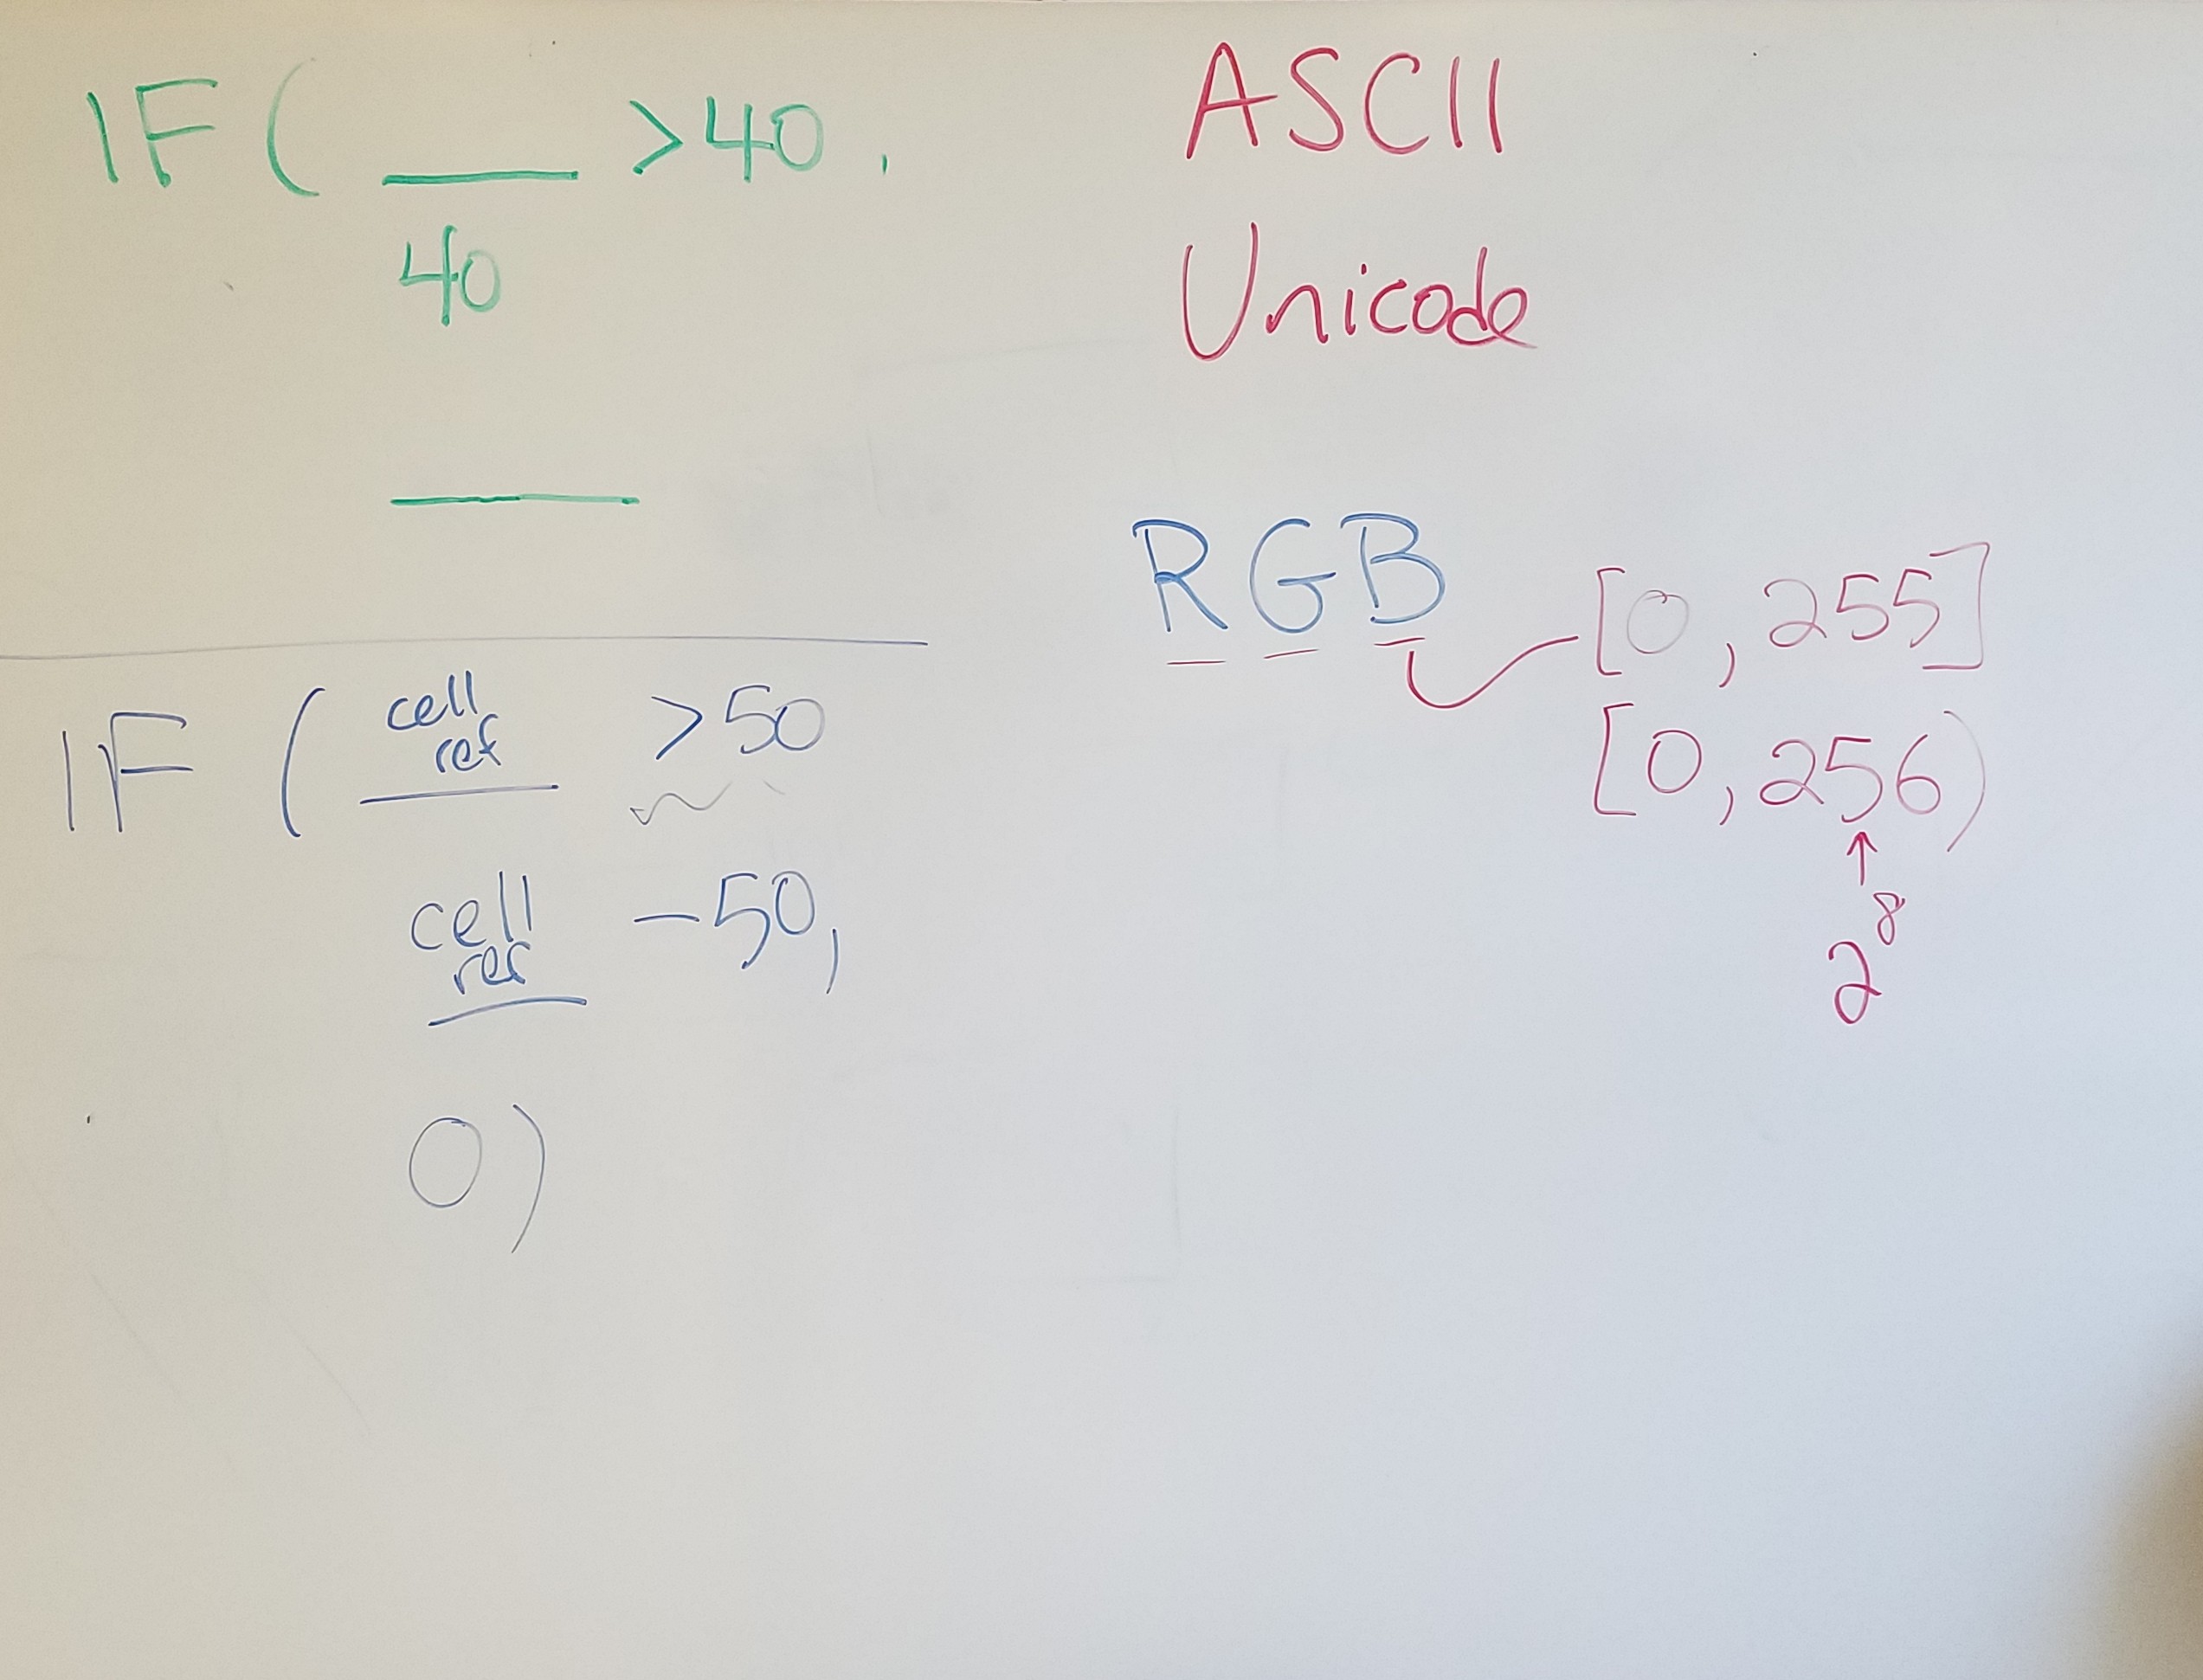 IF ( ___ >40,
40
___
IF ( cell ref >50
cell ref -50,
0)
ASCII
Unicode
RGB [0, 255]
[0, 256)
↑
2⁸